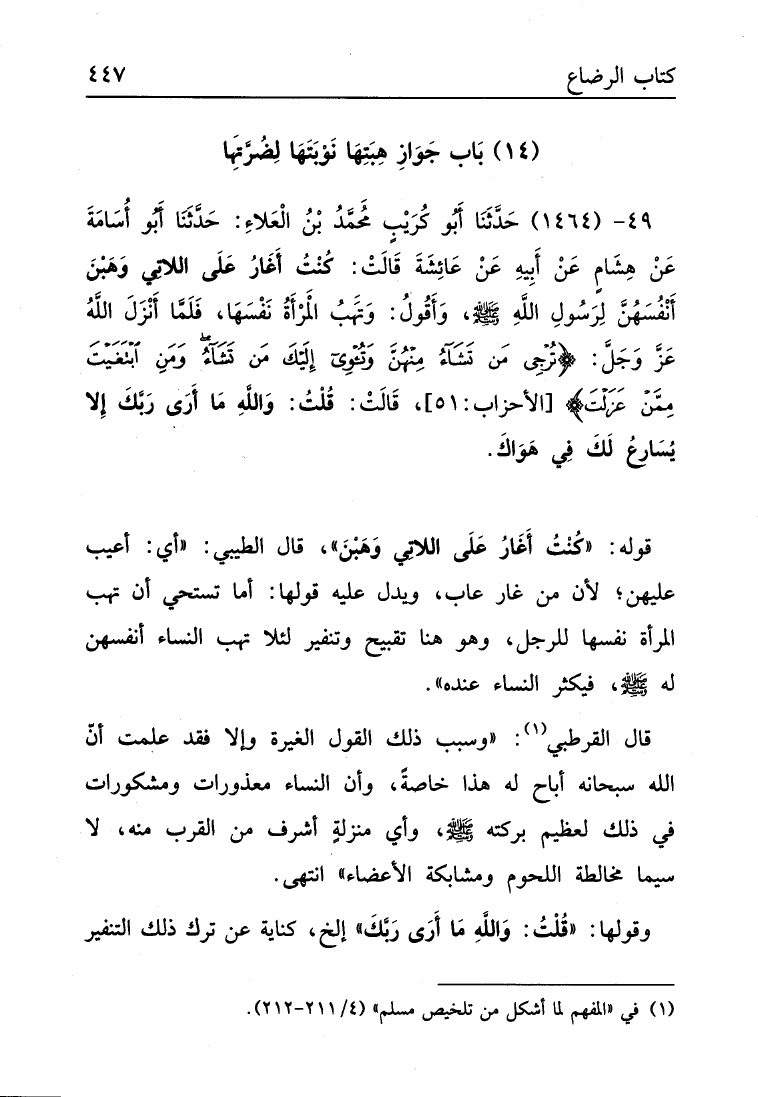 كتاب الرضاع ٤٤٧
(١٤) بَاب جَوَازِ هِبَتِهَا نَوْبَتَهَا لِضُرَّتِهَا
٤٩- (١٤٦٤) حَدَّثَنَا أَبُو كُرَيْبٍ مُحَمَّدُ بْنُ الْعَلاءِ: حَدَّثَنَا أَبُو أُسَامَةَ
عَنْ هِشَامٍ عَنْ أَبِيهِ عَنْ عَائِشَةَ قَالَتْ: كُنْتُ أَغَارُ عَلَى اللاتِي وَهَبْنَ
أَنْفُسَهُنَّ لِرَسُولِ اللَّهِ ﷺ، وَأَقُولُ: وَتَهَبُ الْمَرْأَةُ نَفْسَهَا، فَلَمَّا أَنْزَلَ اللَّهُ
عَزَّ وَجَلَّ: ﴿تُرْجِى مَن تَشَآءُ مِنْهُنَّ وَتُـْٔوِىٓ إِلَيْكَ مَن تَشَآءُ ۖ وَمَنِ ٱبْتَغَيْتَ
مِمَّنْ عَزَلْتَ﴾ [الأحزاب:٥١]، قَالَتْ: قُلْتُ: وَاللَّهِ مَا أَرَى رَبَّكَ إِلا
يُسَارِعُ لَكَ فِي هَوَاكَ.
قوله: «كُنْتُ أَغَارُ عَلَى اللاتِي وَهَبْنَ»، قال الطيبي: «أي: أعيب
عليهن؛ لأن من غار عاب، ويدل عليه قولها: أما تستحي أن تهب
المرأة نفسها للرجل، وهو هنا تقبيح وتنفير لئلا تهب النساء أنفسهن
له ﷺ، فيكثر النساء عنده».
قال القرطبي(١): «وسبب ذلك القول الغيرة وإلا فقد علمت أنّ
الله سبحانه أباح له هذا خاصةً، وأن النساء معذورات ومشكورات
في ذلك لعظيم بركته ﷺ، وأي منزلةٍ أشرف من القرب منه، لا
سيما مخالطة اللحوم ومشابكة الأعضاء» انتهى.
وقولها: «قُلْتُ: وَاللَّهِ مَا أَرَى رَبَّكَ» إلخ، كناية عن ترك ذلك التنفير
(١) في «المفهم لما أشكل من تلخيص مسلم» (٤/ ٢١١-٢١٢).